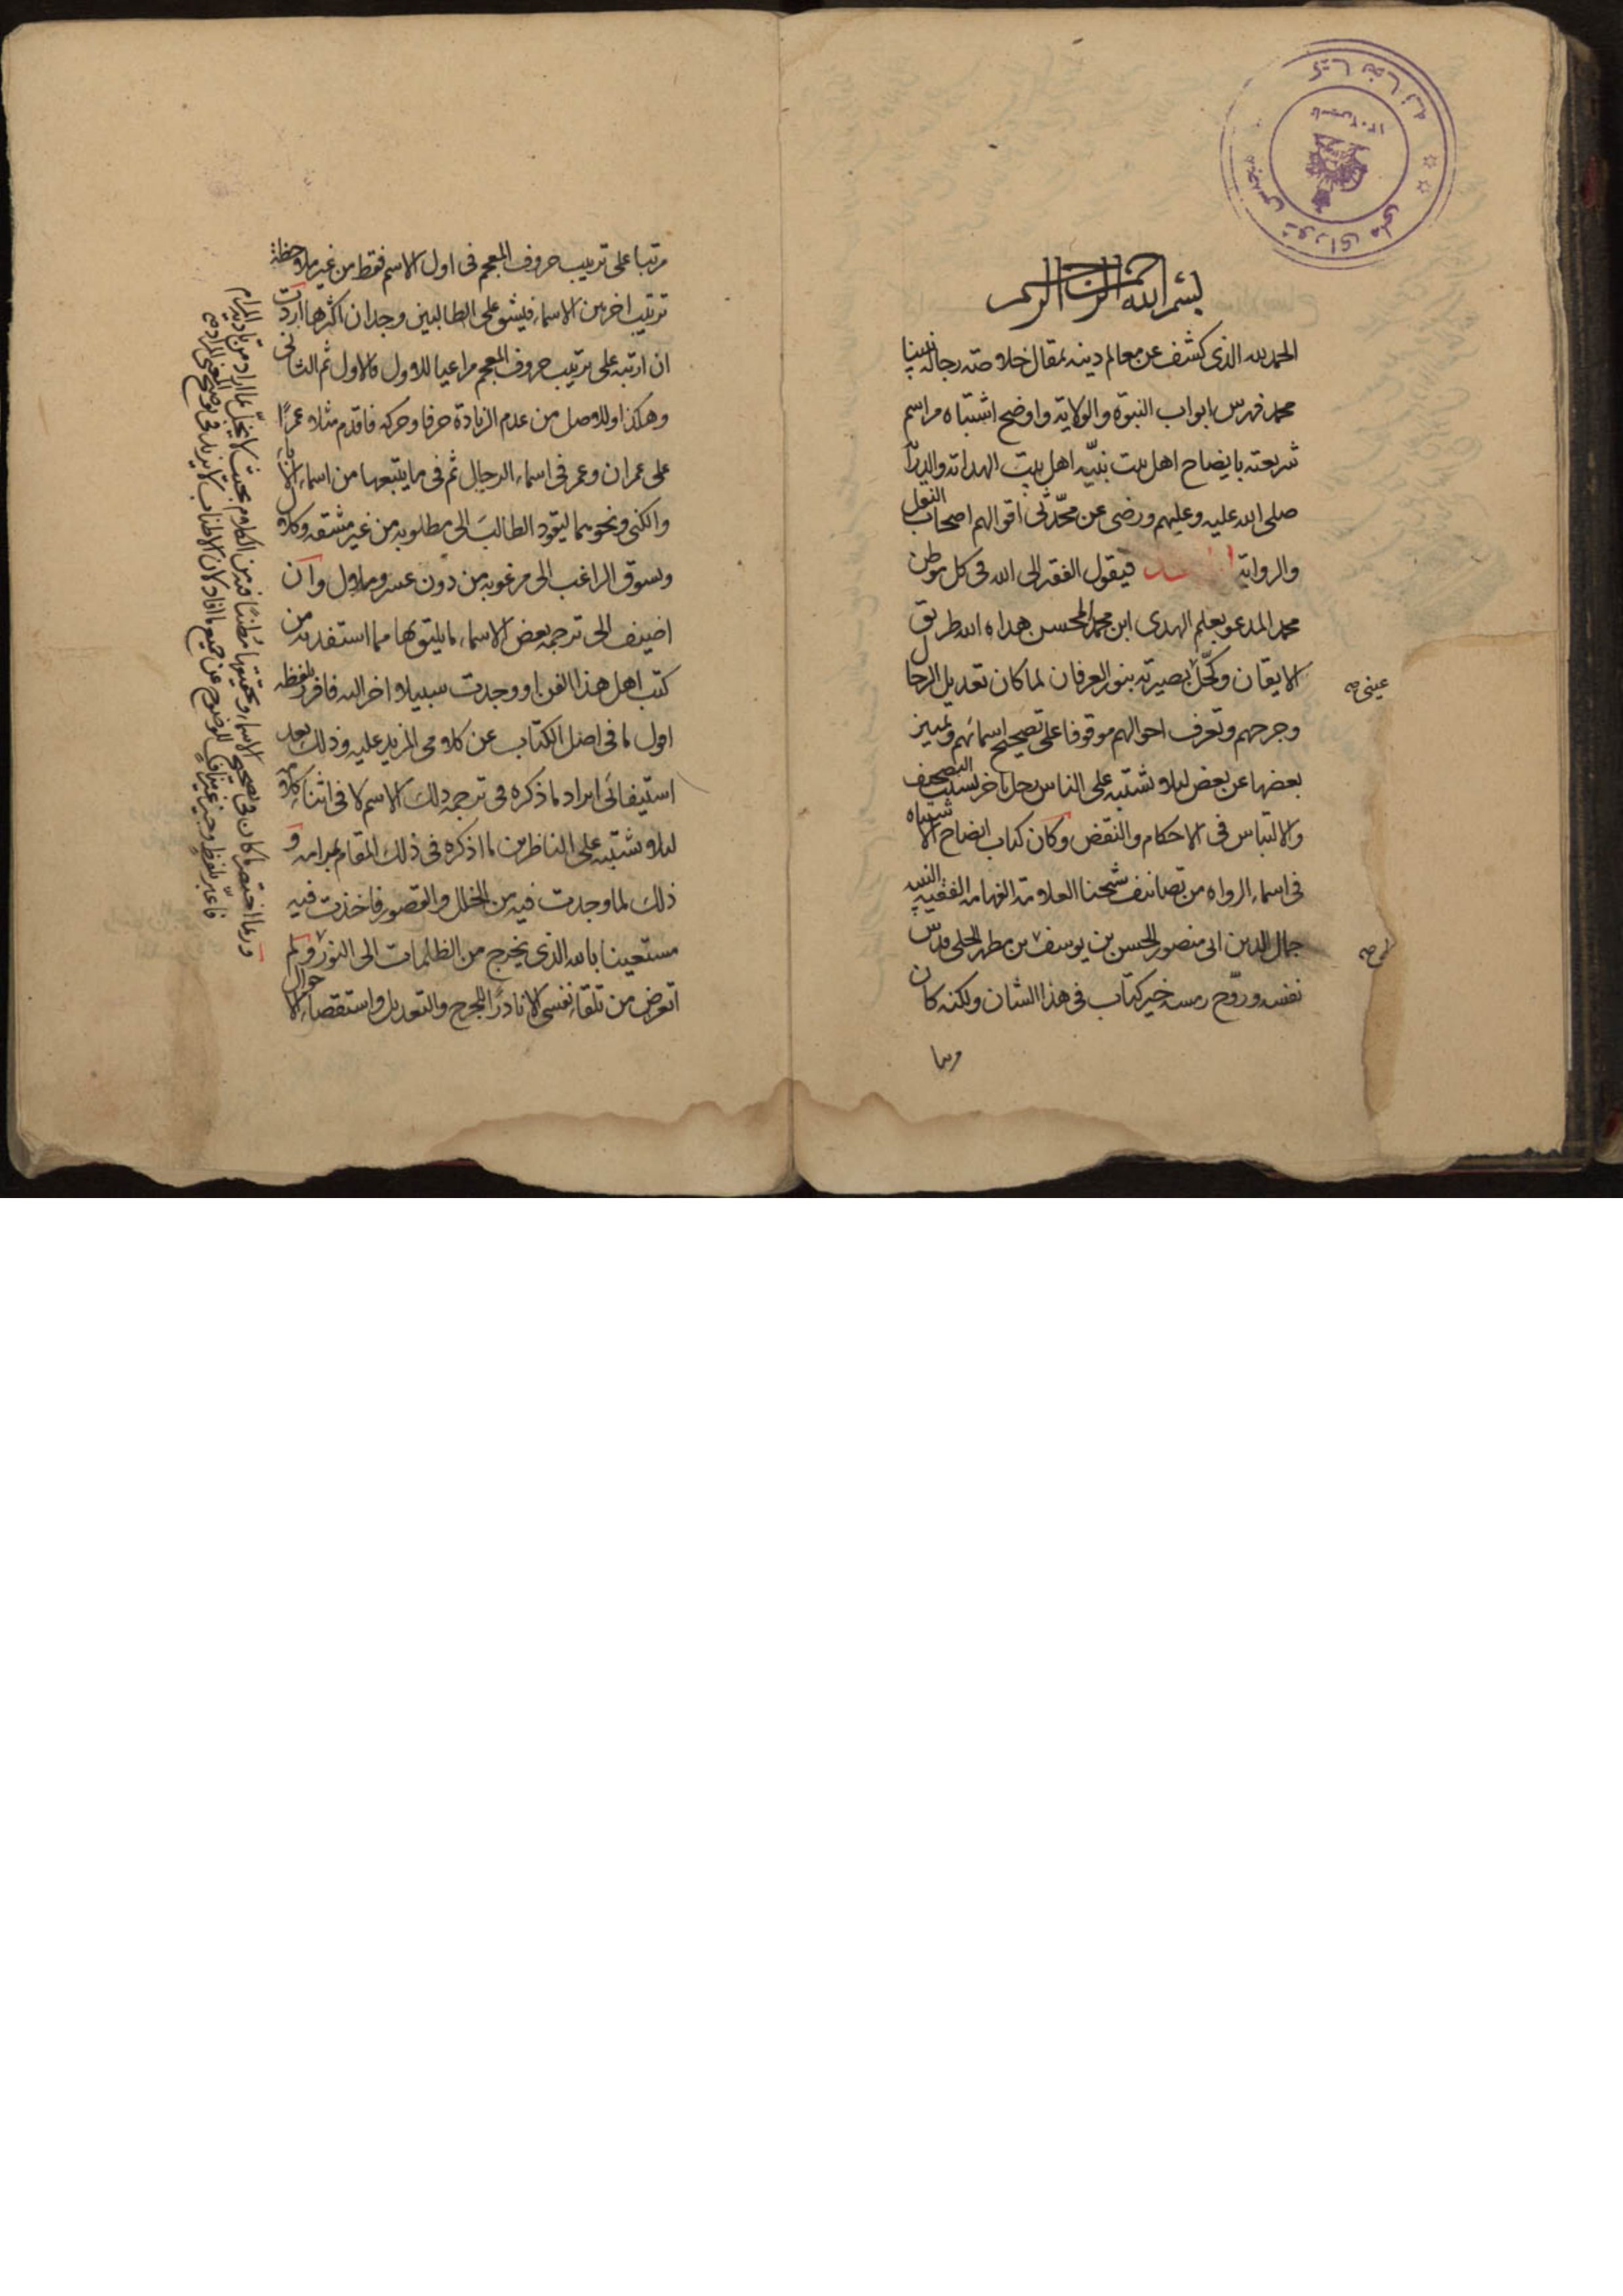 بسم الله الرحمن الرحيم
الحمد لله الذى كشف عن معالم دينه بمقال خلاصته رجاله نبينا
محمد فهرس ابواب النبوة والولاية واوضح اشتباه مراسم
شريعته بايضاح اهل بيت نبيه اهل بيت الهداية والدراية
صلى الله عليه وعليهم ورضى عن محدثى اقوالهم اصحاب النقل
والرواية فيقول الفقير الى الله فى كل موطن
محمد المدعو بعلم الهدى ابن محمد المحسن هداه الله طريق
الايقان وكحل بصيرته بنور العرفان لما كان تعديل الرجال
عينى صح
وجرحهم وتعرف احوالهم موقوفا على تصحيح اسمائهم وتميز
بعضها عن بعض لئلا يشتبه على الناس رجل باخر بسبب التصحيف
والالتباس فى الاحكام والنقض وكان كتاب ايضاح الاشتباه
فى اسماء الرواه من تصانيف شيخنا العلامة الفهامة الفقيه النبيه
جمال الدين ابى منصور الحسن بن يوسف بن مطهر الحلى قدس
نفسه وروح رمسه خير كتاب فى هذا الشان ولكنه كان
مرتبا
مرتبا على ترتيب حروف المعجم فى اول الاسم فقط من غير ملاحظة
ترتيب اخر من الاسماء فيشق على الطالبين وجدان اكثرها اردت
ان ارتبه على ترتيب حروف المعجم مراعيا للاول فالاول ثم الثانى
وهكذا وللاصل من عدم الزيادة حرفا وحركه فاقدم مثلا عمرًا
على عمران وعمر فى اسماء الرجال ثم فى ما يتبعها من اسماء الاباء
والكنى ونحوهما ليقود الطالبَ الى مطلوبه من غير مشقه وكلال
ويسوق الراغب الى مرغوبه من دون عسر وملال وان
اضيف الى ترجمة بعض الاسماء ما يليق بها مما استفدته من
كتب اهل هذا الفن او وجدت سبيلا اخر اليه فافرد بلفظه
اقول ما فى اصل الكتاب عن كلامى المزيد عليه وذلك بعد
استيفائى ايراد ما ذكره فى ترجمة ذلك الاسم لا فى اثناء كلامه
لئلا يشتبه على الناظرين ما اذكره فى ذلك المقام بمرامه و
ذلك لما وجدت فيه من الخلل والقصور فاخذت فيه
مستعينا بالله الذى يخرج من الظلمات الى النور ولم
اتعرض من تلقاء نفسى الا نادرًا للجرح والتعديل واستقصاء الاحوال
وربما اختصر ما كان فى تصحيح الاسماء وتحقيقها مُطنبًا فيه من الكلام بحيث لا يخلّ بما اراد من تادية المرام
فاعبّر بلفظٍ وجيزٍ عن جميع ما افاد لان الاطناب لا يزيد فى توضيح المعنى المراد